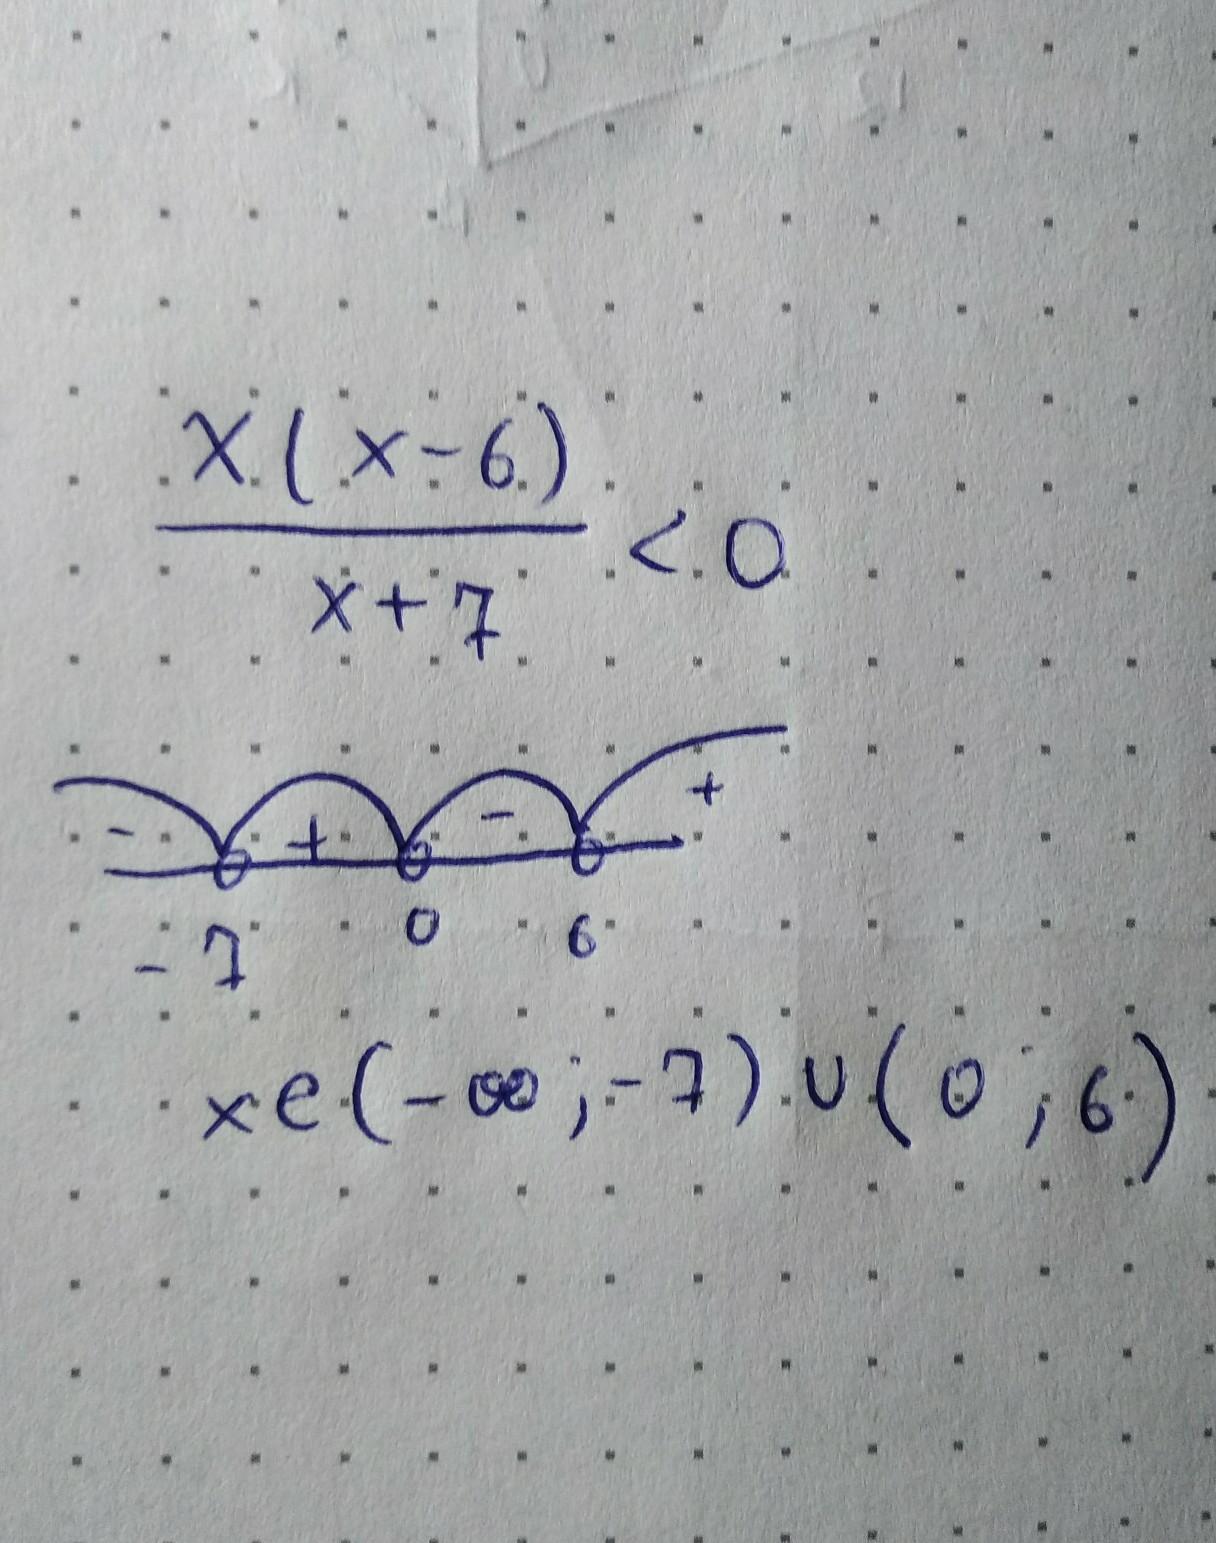 x(x-6)
x+7
< 0
- + - +
-7 0 6
x∈(-∞;-7)∪(0;6)